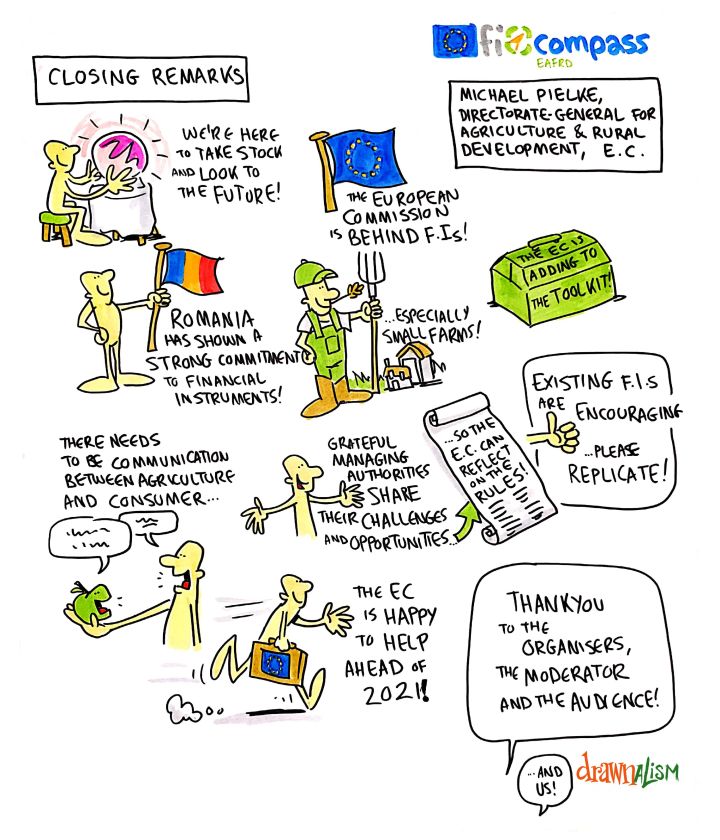 fi compass
EAFRD
CLOSING REMARKS
MICHAEL PIELKE,
DIRECTORATE-GENERAL FOR
AGRICULTURE & RURAL
DEVELOPMENT, E.C.
WE'RE HERE
TO TAKE STOCK
AND LOOK TO
THE FUTURE!
THE EUROPEAN
COMMISSION
IS BEHIND F.Is!
THE EC IS
ADDING TO
THE TOOLKIT!
ROMANIA
HAS SHOWN A
STRONG COMMITMENT
TO FINANCIAL
INSTRUMENTS!
...ESPECIALLY
SMALL FARMS!
EXISTING F.I.s
ARE ENCOURAGING
...PLEASE
REPLICATE!
THERE NEEDS
TO BE COMMUNICATION
BETWEEN AGRICULTURE
AND CONSUMER...
GRATEFUL
MANAGING
AUTHORITIES
SHARE
THEIR CHALLENGES
AND OPPORTUNITIES...
...SO THE
E.C. CAN
REFLECT
ON THE
RULES!
THE EC
IS HAPPY
TO HELP
AHEAD OF
2021!
THANKYOU
TO THE
ORGANISERS,
THE MODERATOR
AND THE AUDIENCE!
...AND
US!
drawnALISM